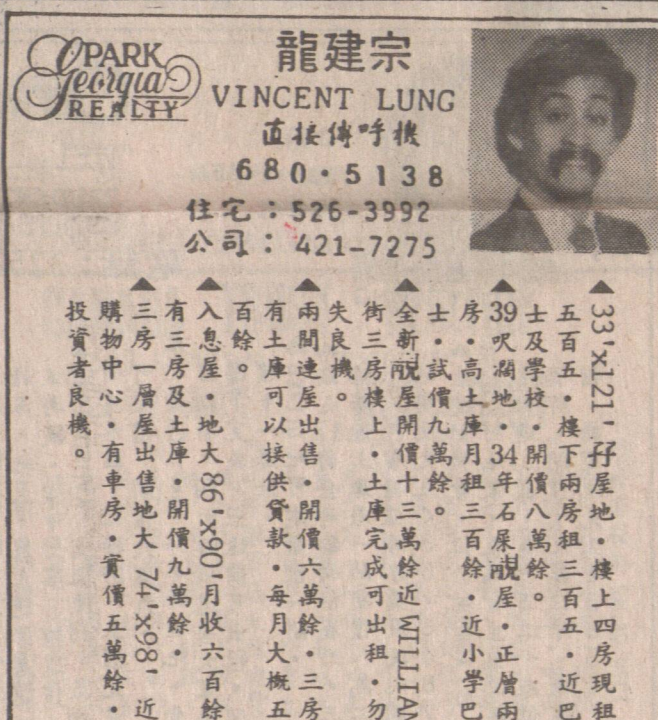 PARK
Georgia
REALTY
龍建宗
VINCENT LUNG
直接傳呼機
680·5138
住宅：526-3992
公司：421-7275
▲33'x121'孖屋地·樓上四房現租
五百五·樓下兩房租三百五·近巴
士及學校·開價八萬餘。
▲39呎濶地·34年石屎覩屋·正層兩
房·高土庫月租三百餘·近小學巴
士·試價九萬餘。
▲全新覩屋開價十三萬餘近WILLIAM
街三房樓上·土庫完成可出租·勿
失良機。
▲兩間連屋出售·開價六萬餘·三房
有土庫可以接供貸款·每月大概五
百餘。
▲入息屋·地大86'x90'月收六百餘
有三房及土庫·開價九萬餘·
▲三房一層屋出售地大74'x98'近
購物中心·有車房·實價五萬餘·
投資者良機。